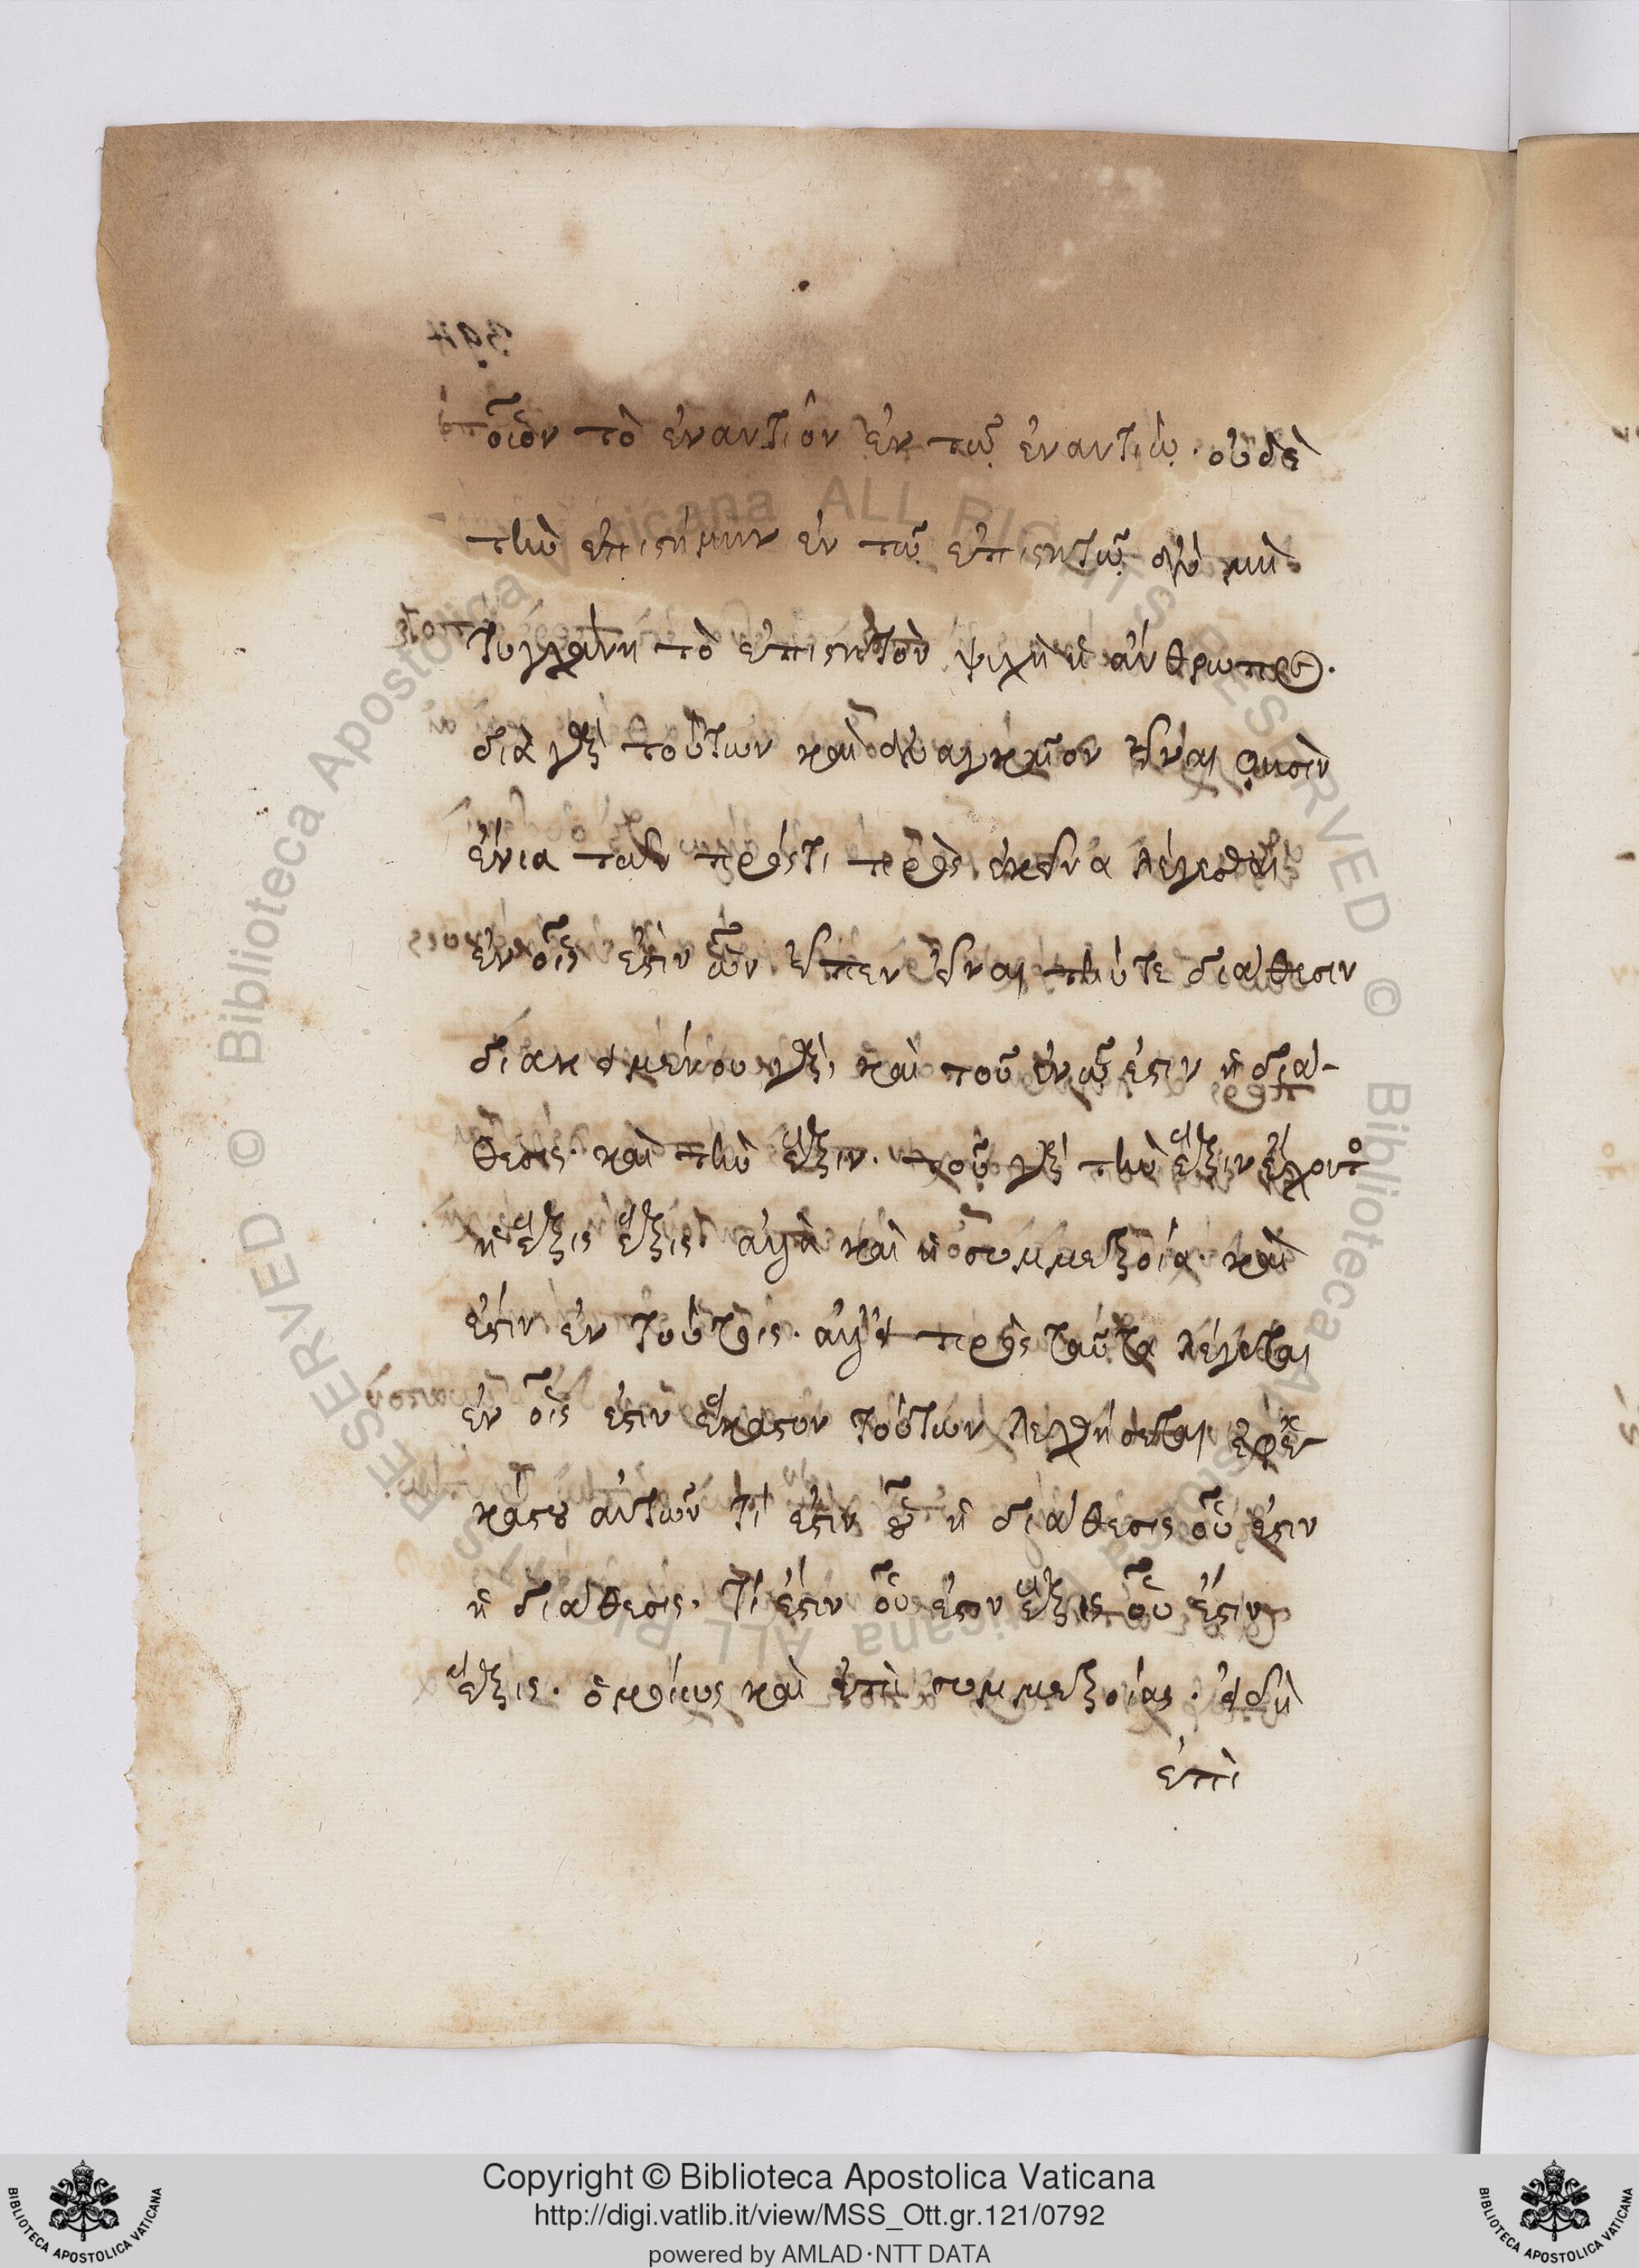 οἷον τὸ ἐναντίον ἐν τῷ ἐναντίῳ· οὐδὲ
τὴν ἐπιστήμην ἐν τῷ ἐπιστητῷ ἂν μὴ
τυγχάνῃ τὸ ἐπιστητὸν ψυχὴ ἢ ἄνθρωπος.
διὰ γὰρ τούτων καὶ ἀναγκαῖον εἶναι φησὶν
ἔνια τῶν πρόστι πρὸς ἐκεῖνα λέγεσθαι
ἐν οἷς ἐστὶν ὧν εἶπεν εἶναι τήντε διάθεσιν
διακειμένου γὰρ καὶ τοῦ ἐν ᾧ ἐστιν ἡ διά-
θεσις· καὶ τὴν ἕξιν· τοῦ γὰρ τὴν ἕξιν ἔχοντος
ἡ ἕξις ἕξις· ἀλλὰ καὶ ἡ συμμετρία· καὶ
ἐστὶν ἐν τούτοις· ἀλλ' εἰ πρὸς ταῦτα λέγεται
ἐν οἷς ἐστιν ἕκαστον τούτων λεχθήσεται ἐφ' ἑ-
κάστου αὐτῶν τί ἐστιν οὗ ἡ διάθεσις οὗ ἐστιν
ἡ διάθεσις· τί ἐστιν οὗ ἐστιν ἕξις οὗ ἐστιν
ἕξις· ὁμοίως καὶ ἐπὶ συμμετρίας· εἰ δὴ
ἐπὶ
Copyright © Biblioteca Apostolica Vaticana
http://digi.vatlib.it/view/MSS_Ott.gr.121/0792
powered by AMLAD·NTT DATA
BIBLIOTECA APOSTOLICA VATICANA
BIBLIOTECA APOSTOLICA VATICANA
© Biblioteca Apostolica Vaticana ALL RIGHTS RESERVED
© Biblioteca Apostolica Vaticana ALL RIGHTS RESERVED